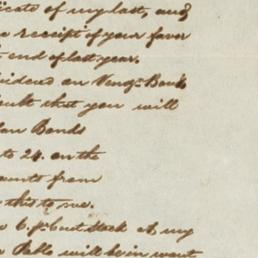 icate of my last, and
receipt of your favor
end of last year.
sidered on Venz. Bonds
oubt that you will
an Bonds
to 24. on the
ounts from
this to me.
6. p. Cent Stock at my
Pablo will be in want